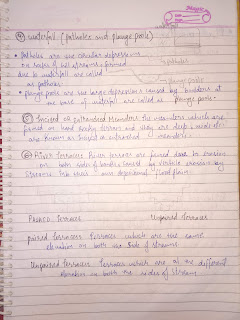 ④ waterfall (potholes and plunge pools)
• Potholes are use circular depressions
on beds of hill streams formed
due to waterfall are called
as potholes.
potholes
plunge pools
• Plunge pools are use large depression is caused by boulders at
the base of waterfall are called as plunge pools.
⑤ Incised or entrenched Meanders the meanders which are
formed on hard rocky terrain and they are deep & wide
are known as incised or entrenched meanders.
⑥ River terraces River terraces are formed due to erosion
on both sides of banks formed by vertical erosion by
streams into their own depositional flood plain
Paired terraces Unpaired terraces
paired terraces terraces which are the same
elevation on both the side of streams
Unpaired terraces terraces which are at the different
elevation on both the sides of streams